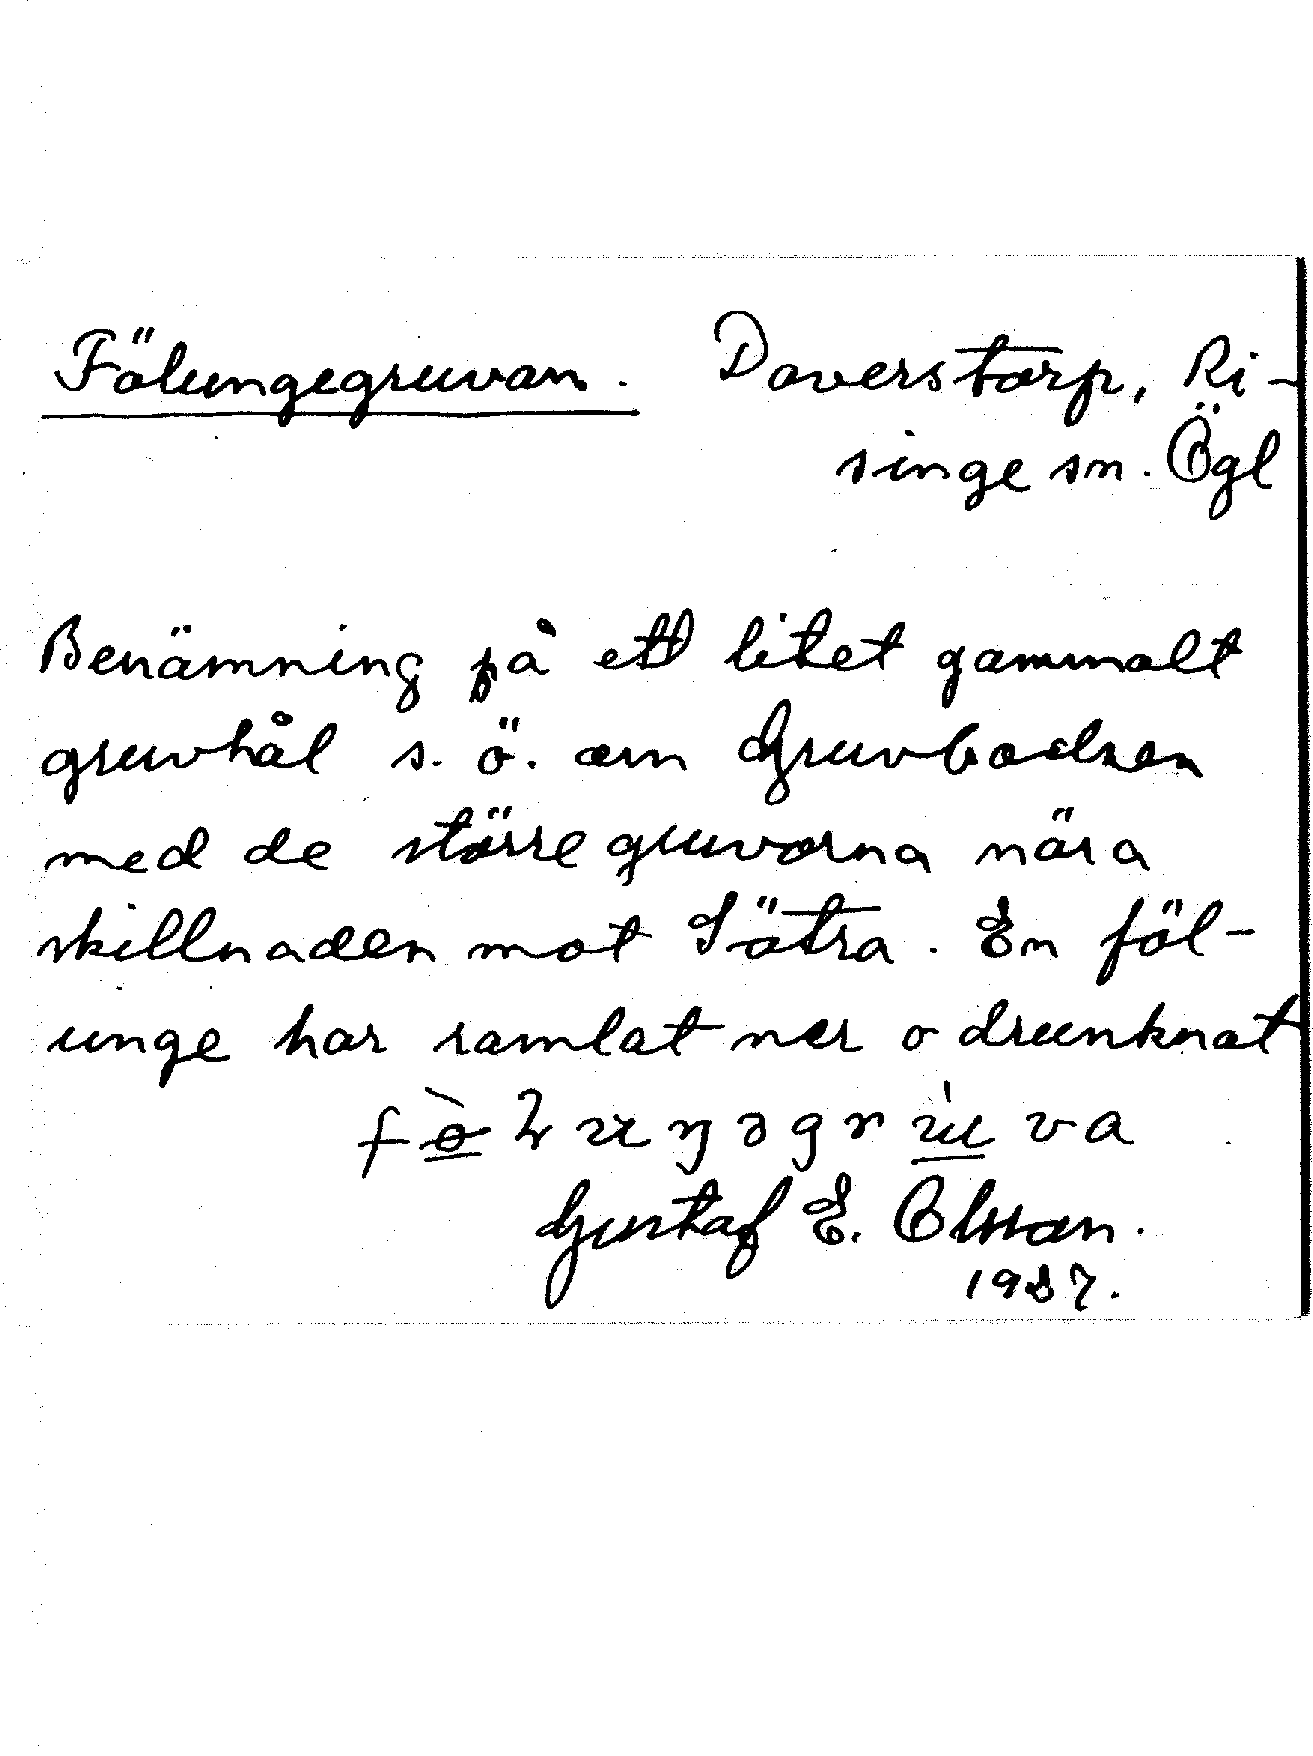 Fölungegruvan. Doverstorp, Ri-
singe sn. Ögl
Benämning på ett litet gammalt
gruvhål s. ö. om Gruvbacken
med de större gruvorna nära
skillnaden mot Sätra. En föl-
unge har ramlat ner o drunknat
Gustaf E. Olsson.
1937.